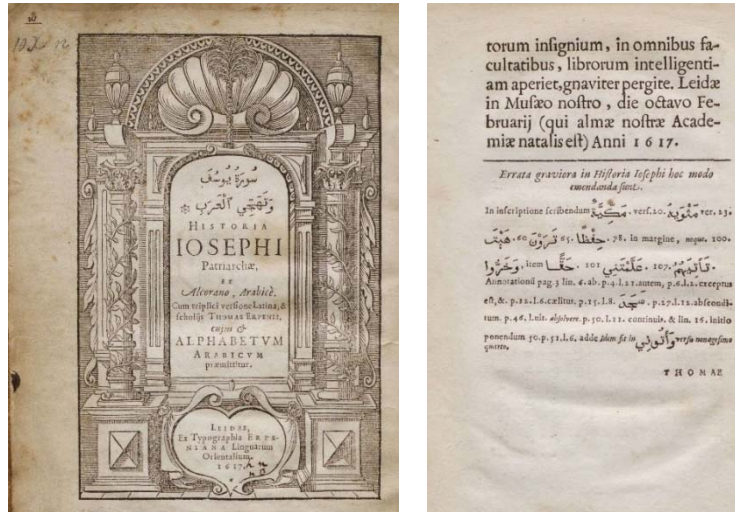 سُورَةُ يُوسُفَ
وَتَهَجِّي ٱلْعَرَبِ
HISTORIA
IOSEPHI
Patriarchæ,
EX
Alcorano, Arabicè.
Cum triplici versione Latina, &
scholijs THOMÆ ERPENII,
cujus &
ALPHABETVM
ARABICVM
præmittitur.
LEIDAE,
Ex Typographia ERPE-
NIANA Linguarum
Orientalium.
1617.
torum insignium, in omnibus fa-
cultatibus, librorum intelligenti-
am aperiet, gnaviter pergite. Leidæ
in Musæo nostro, die octavo Fe-
bruarij (qui almæ nostræ Acade-
miæ natalis est) Anni 1617.
Errata graviora in Historia Iosephi hoc modo
emendanda sunt.
In inscriptione scribendum مَكِّيَّةٌ. vers. 20. مَثْوَيهُ ver. 23.
هِيْتَ. 60 تَرَوْنَ 65. حِفْظًا. 78. in margine, neque. 100.
وَخَرُّوا. item حَقًّا. 101 عَلَّمْتَنِي. 107. تَأْتِيَهُمْ.
Annotationū pag. 3 lin. 6. ab. p. 4. l. 21. autem, p. 6. l. 2. exceptus
est, &. p. 12. l. 6. cælitus. p. 15. l. 8. سَجَدَ. p. 27. l. 12. abscondi-
tum. p. 46. l. ult. absolvere. p. 50. l. 11. continuis. & lin. 16. initio
ponendum 30. p. 51. l. 6. adde Idum fit in وَأْتُونِي versu nonagesimo
quarto.
THOMAE